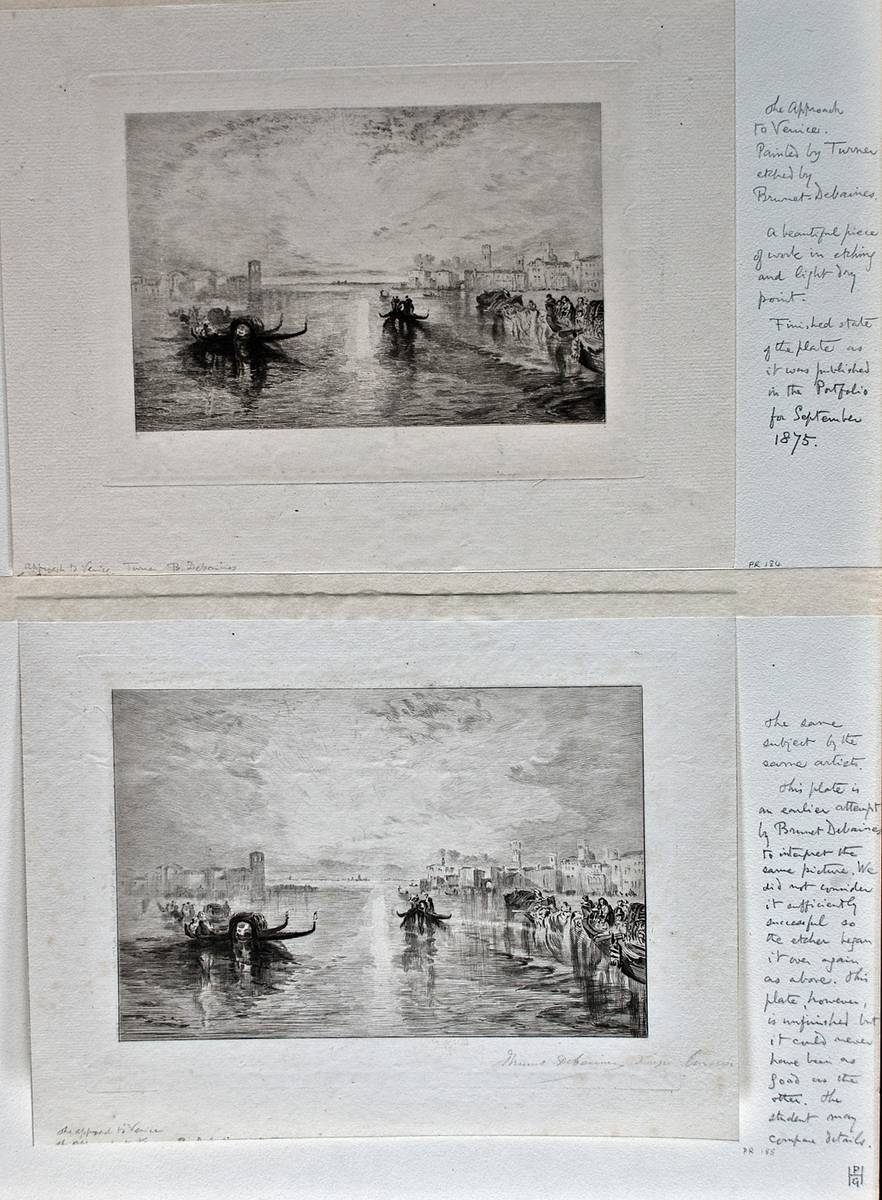 The Approach
to Venice.
Painted by Turner
etched by
Brunet-Debaines.
A beautiful piece
of work in etching
and light dry
point.
Finished state
of the plate as
it was published
in the Portfolio
for September
1875.
Approach to Venice Turner B. Debaines
PR 184
The same
subject by the
same artists.
This plate is
an earlier attempt
by Brunet Debaines
to interpret the
same picture. We
did not consider
it sufficiently
successful so
the etcher began
it over again
as above. This
plate, however,
is unfinished but
it could never
have been as
good as the
other. The
student may
compare details.
Brunet Debaines
The approach to Venice
PR 185
PHG